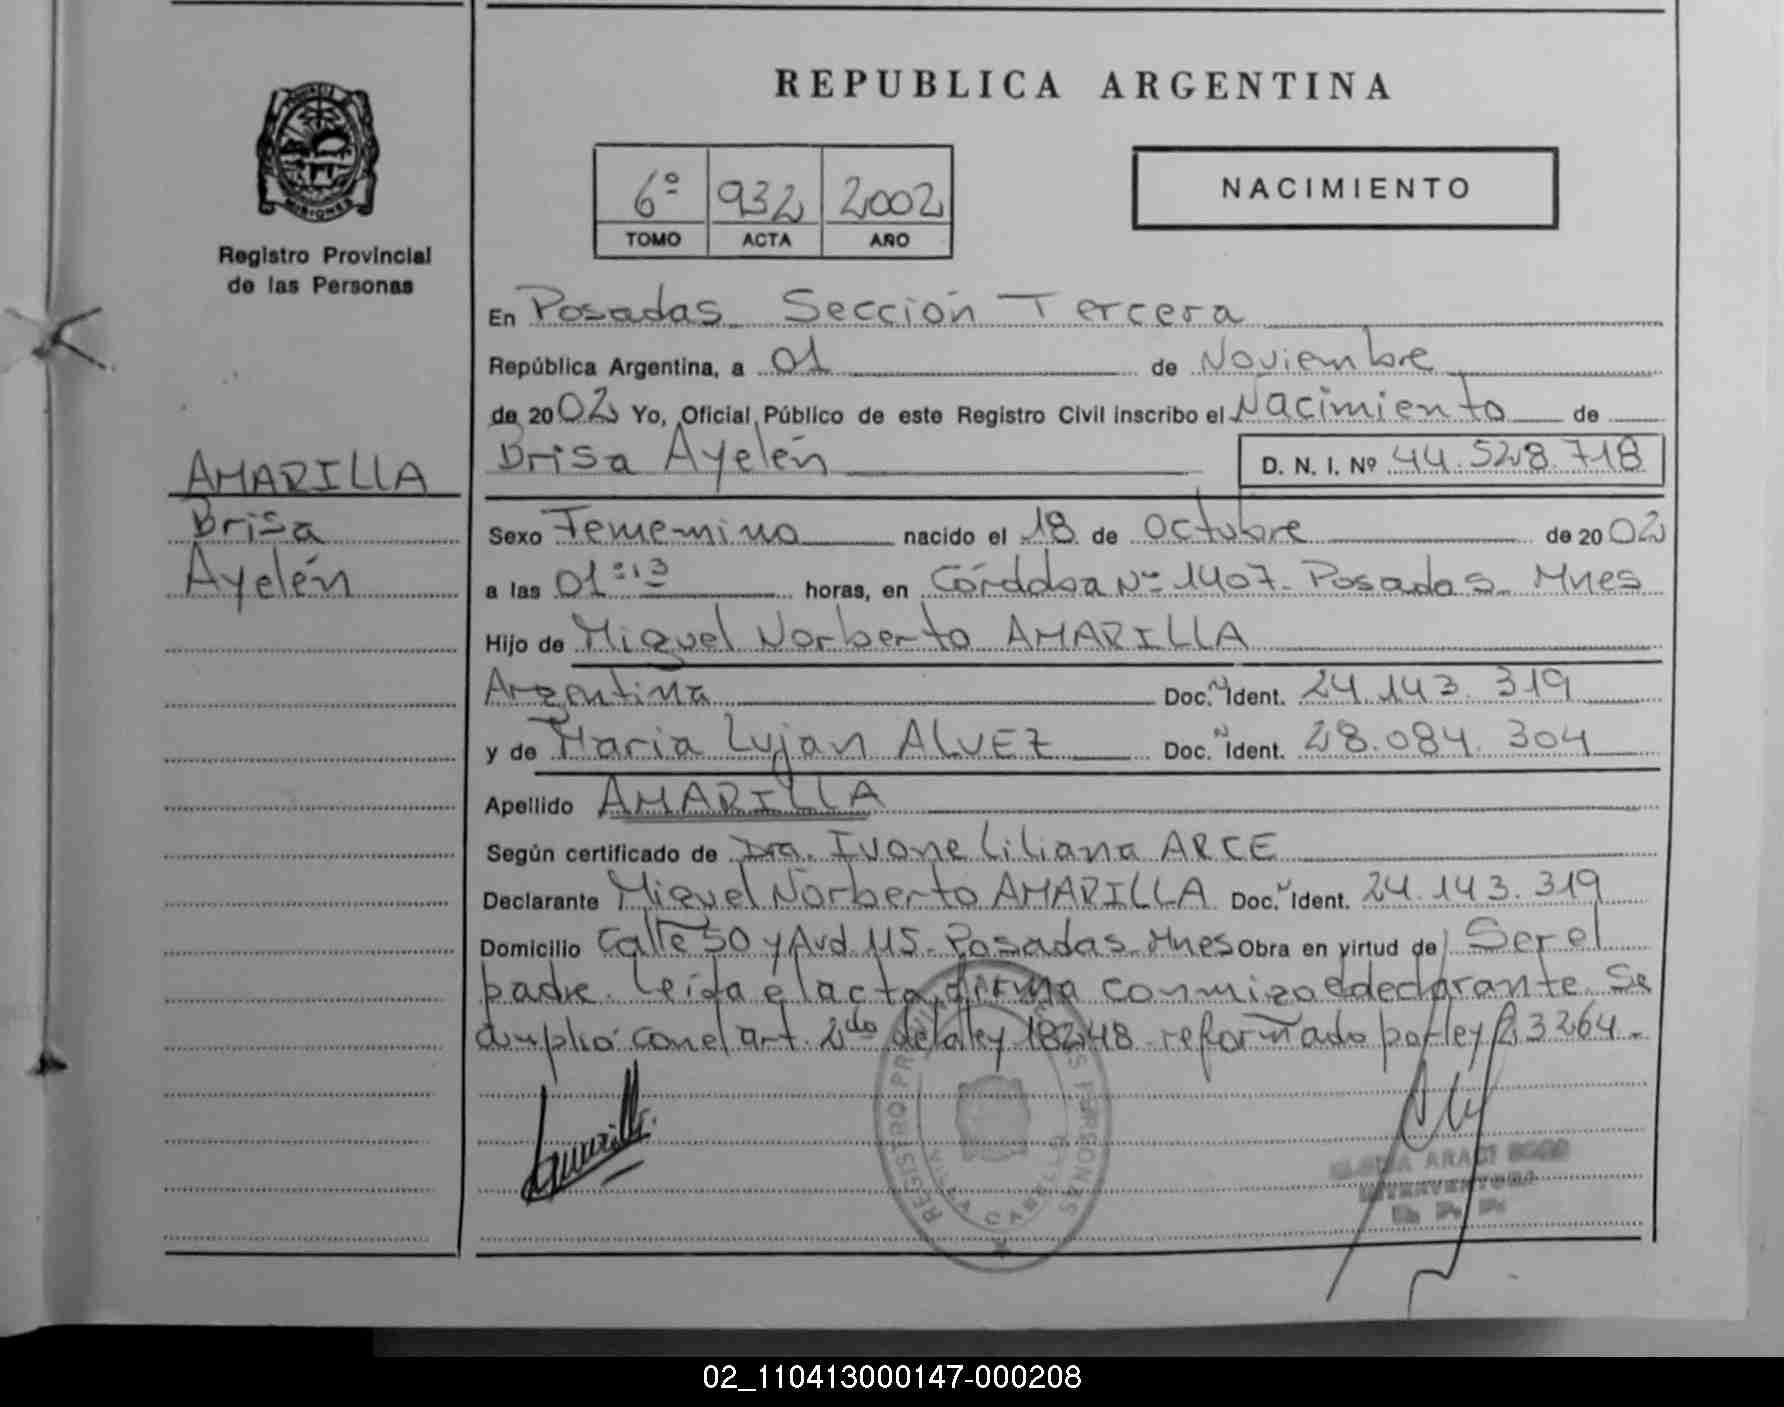 REPUBLICA ARGENTINA
NACIMIENTO
6º 932 2002
TOMO ACTA AÑO
MISIONES
Registro Provincial
de las Personas
AMARILLA
Brisa
Ayelén
En Posadas Sección Tercera
República Argentina, a 01 de Noviembre
de 2002 Yo, Oficial Público de este Registro Civil inscribo el Nacimiento de
Brisa Ayelén D. N. I. Nº 44.528.718
Sexo Femenino nacido el 18 de octubre de 2002
a las 01:13 horas, en Córdoba Nº 1407. Posadas. Mnes
Hijo de Miguel Norberto AMARILLA
Argentina Doc. Ident. 24.143.319
y de Maria Lujan ALVEZ Doc. Ident. 28.084.304
Apellido AMARILLA
Según certificado de Dra. Ivone Liliana ARCE
Declarante Miguel Norberto AMARILLA Doc. Ident. 24.143.319
Domicilio Calle 50 y Avd 115. Posadas. Mnes Obra en virtud de Ser el
padre. Leída el acta, firma conmigo el declarante. Se
amplió con el art. 2do de la ley 18248 reformado por ley 23264.-
REGISTRO PERSONAS
ARACI
INTERVENTORA
R. P. P.
02_110413000147-000208